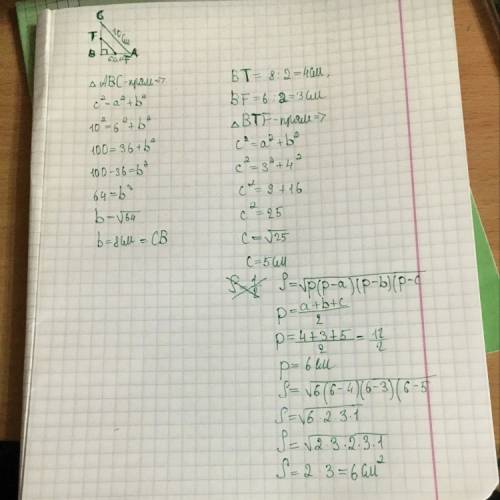 C
10см
T
B
6см F
A
△ABC-прям=>
c²=a²+b²
10²=6²+b²
100=36+b²
100-36=b²
64=b²
b=√64
b=8см=CB
BT=8:2=4см,
BF=6:2=3см
△BTF-прям=>
c²=a²+b²
c²=3²+4²
c²=9+16
c²=25
c=√25
c=5см
S=√p(p-a)(p-b)(p-c
p=a+b+c/2
p=4+3+5/2=12/2
p=6см
S=√6(6-4)(6-3)(6-5
S=√6·2·3·1
S=√2·3·2·3·1
S=2·3=6см²